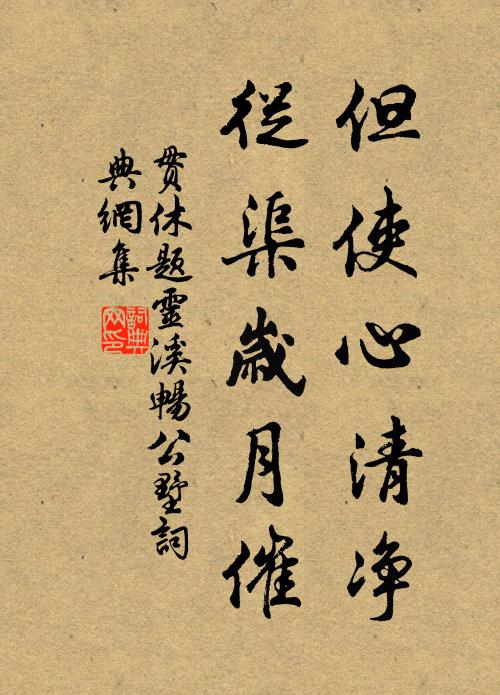 但使心清净
從渠歲月催
贯休題靈溪暢公墅詞
典網集
詞典
网印